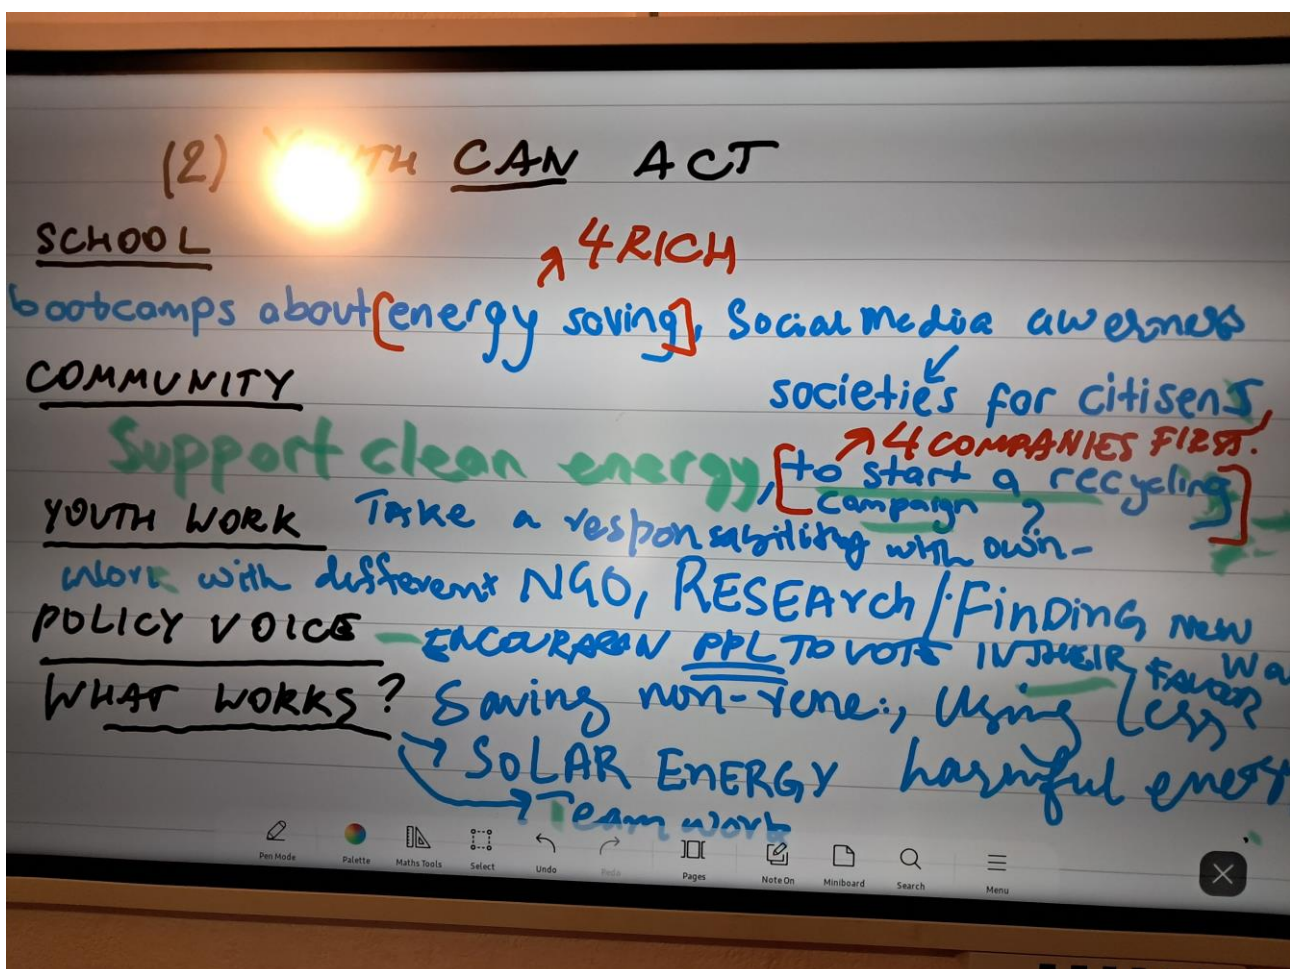 (2) YOUTH CAN ACT
SCHOOL
↗ 4 RICH
bootcamps about [energy saving], Social media awerness
COMMUNITY
societies for citisens,
↗ 4 COMPANIES FIRST.
Support clean energy, [to start a recycling
campaign]
YOUTH WORK Take a responsability with own-
work with different NGO, RESEARch/Finding new
POLICY VOICE - ENCOURAGAN PPL TO VOTE IN THEIR FAVOR
WHAT WORKS? Saving non-rene., Using less
→ SOLAR ENERGY harmful
→ Team work
Pen Mode Palette Maths Tools Select Undo Redo Pages Note On Miniboard Search Menu